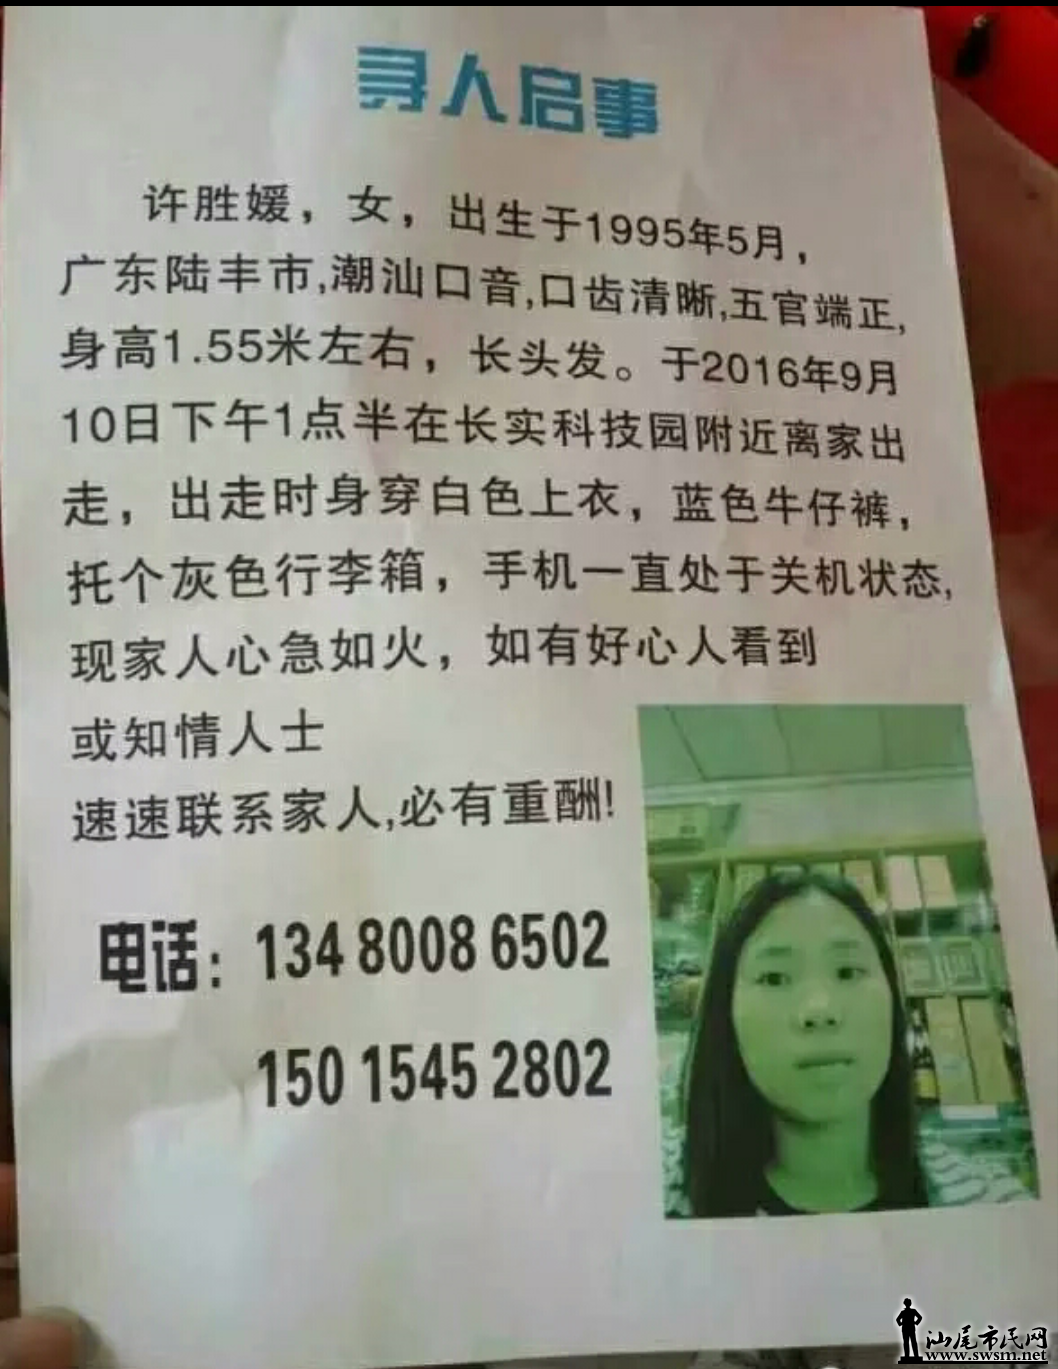 寻人启事
许胜媛，女，出生于1995年5月，
广东陆丰市,潮汕口音,口齿清晰,五官端正,
身高1.55米左右，长头发。于2016年9月
10日下午1点半在长实科技园附近离家出
走，出走时身穿白色上衣，蓝色牛仔裤，
托个灰色行李箱，手机一直处于关机状态,
现家人心急如火，如有好心人看到
或知情人士
速速联系家人,必有重酬!
电话：134 8008 6502
150 1545 2802
汕尾市民网
www.swsm.net